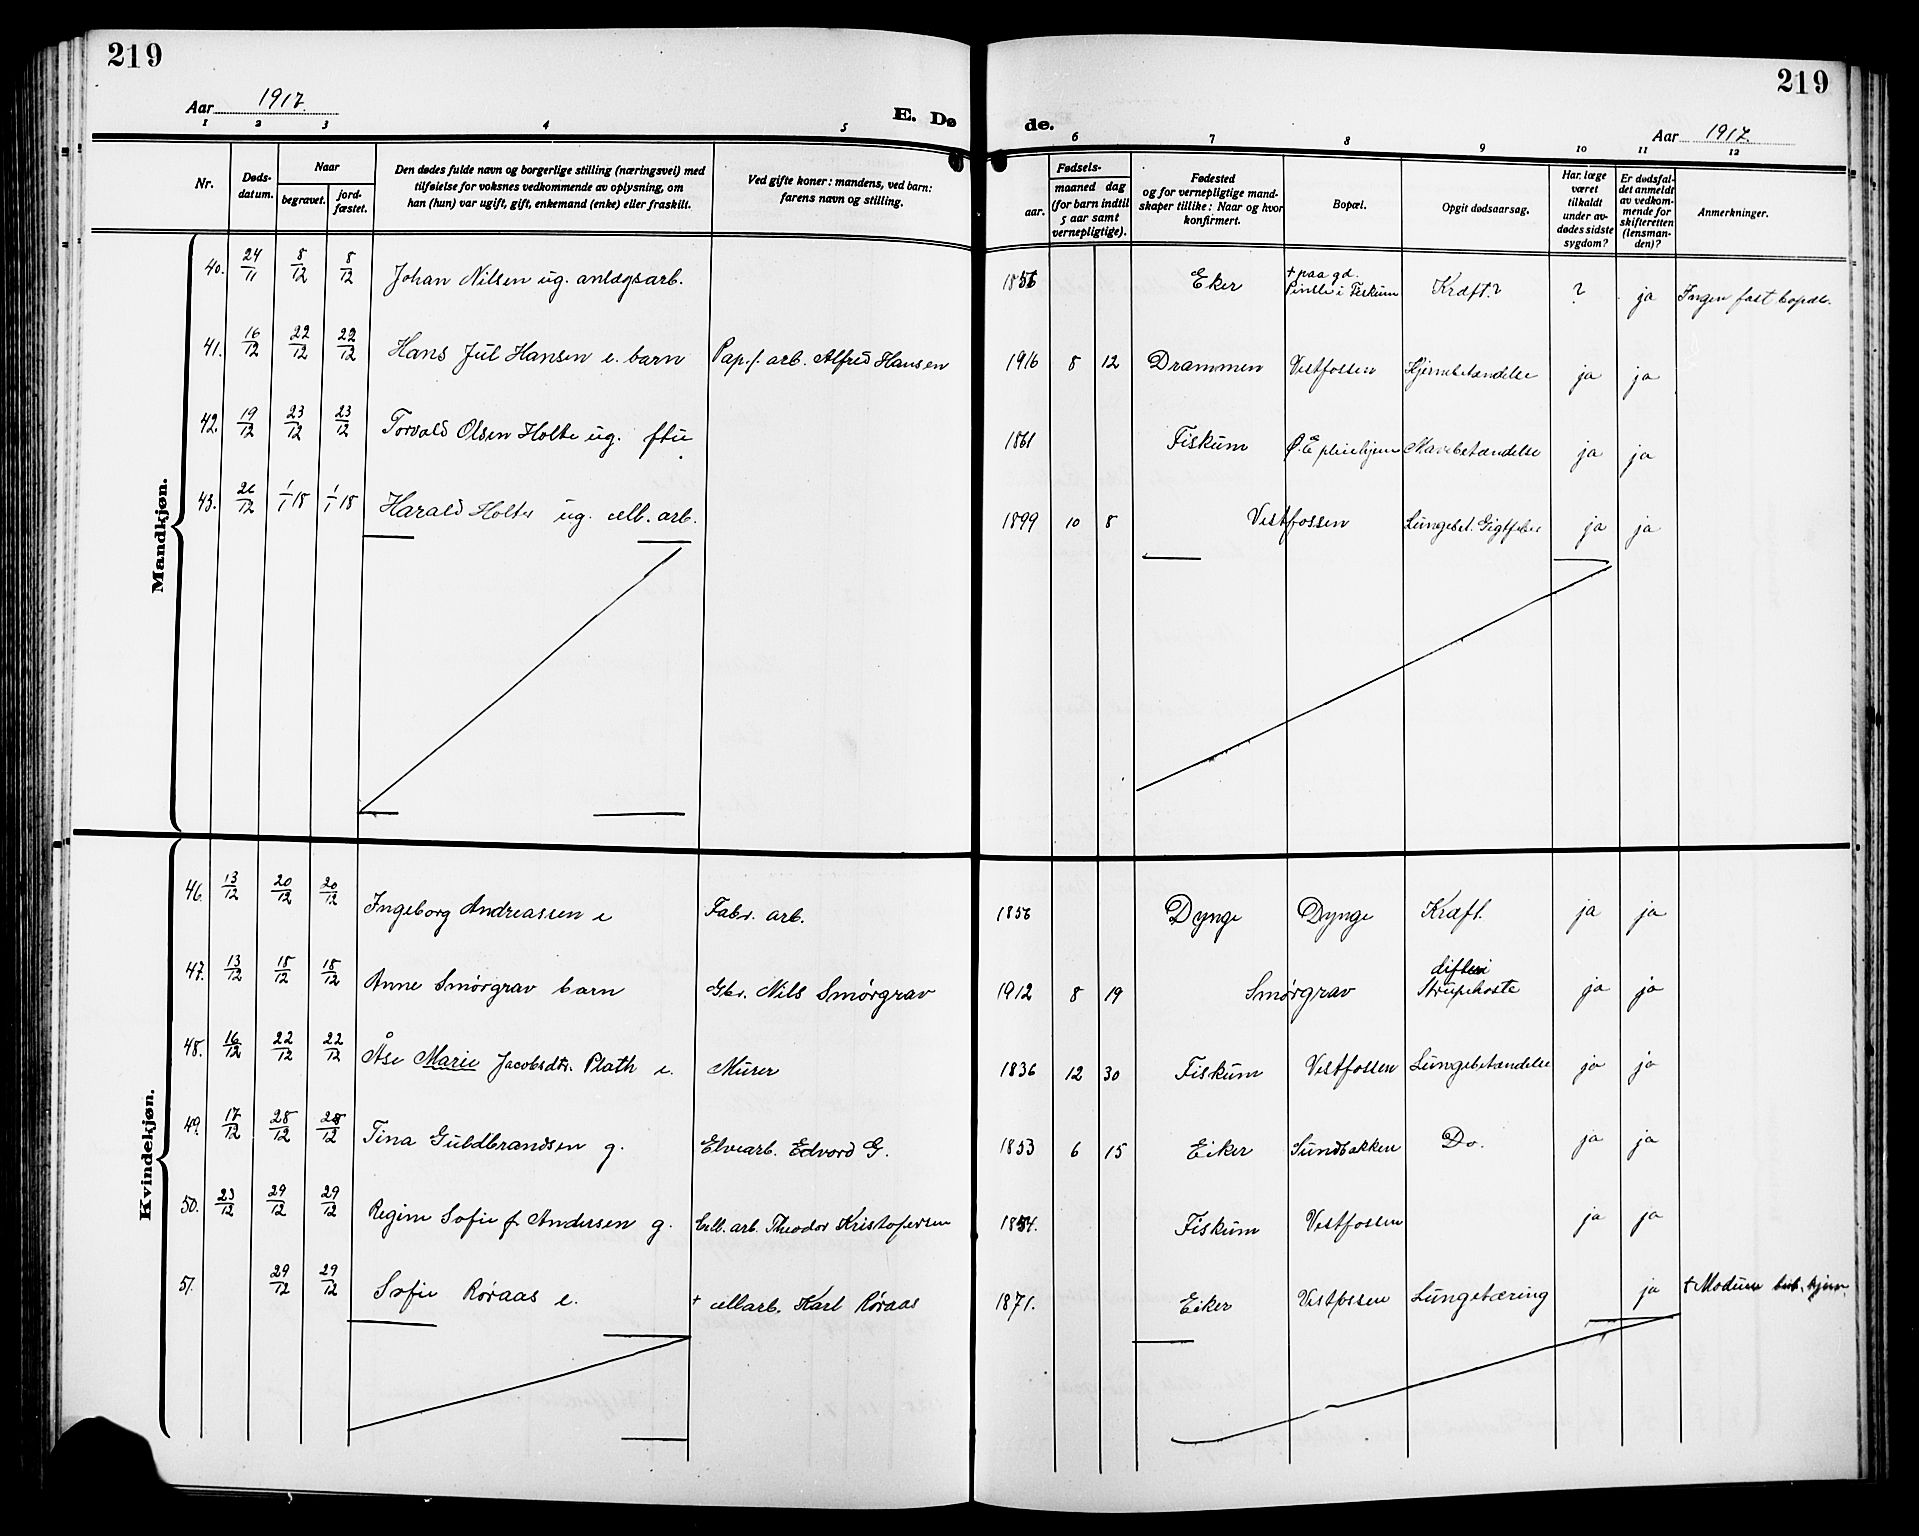 219
219
Aar 1917.
E. Dø
de.
Aar 1917.
1 2 3 4 5 6 7 8 9 10 11 12
Nr.
Døds-
datum.
Naar
begravet.
jord-
fæstet.
Den dødes fulde navn og borgerlige stilling (næringsvei) med
tilføielse for voksnes vedkommende av oplysning, om
han (hun) var ugift, gift, enkemand (enke) eller fraskilt.
Ved gifte koner: mandens, ved barn:
farens navn og stilling.
Fødsels-
aar.
maaned dag
(for barn indtil
5 aar samt
vernepligtige).
Fødested
og for vernepligtige mand-
skaper tillike: Naar og hvor
konfirmert.
Bopæl.
Opgit dødsaarsag.
Har læge
været
tilkaldt
under av-
dødes sidste
sygdom?
Er dødsfal-
det anmeldt
av vedkom-
mende for
skifteretten
(lensman-
den)?
Anmerkninger.
Mandkjøn.
40. 24/11 8/12 8/12 Johan Nilsen ug. anlægsarb. 1856 Eker + paa gd. i Fiskum Kræft? ? ja Ingen fast bopæl.
41. 16/12 22/12 22/12 Hans Jul Hansen e. barn Pap.f. arb. Alfred Hansen 1916 8 12 Drammen Vestfossen Hjernebetændelse ja ja
42. 19/12 23/12 23/12 Torvald Olsen Holte ug. 1861 Fiskum Ø. E pleiehjem Mavebetændelse ja ja
43. 26/12 1/1 18 1/1 18 Harald Holter ug. cell. arb. 1899 10 8 Vestfossen Lungebet. Gigtfeber ja ja
Kvindekjøn.
46. 13/12 20/12 20/12 Ingeborg Andreassen e Fabr. arb. 1856 Dynge Dynge Kræft. ja ja
47. 13/12 18/12 18/12 Anne Smørgrav barn Gbr. Nils Smørgrav 1912 8 19 Smørgrav difteri Strupehoste ja ja
48. 16/12 22/12 22/12 Åse Marie Jacobsdtr. Plath e. Murer 1836 12 30 Fiskum Vestfossen Lungebetændelse ja ja
49. 17/12 28/12 28/12 Tina Guldbrandsen g. Elvearb. Edvard G. 1853 6 15 Eiker Sundbakken Do. ja ja
50. 23/12 29/12 29/12 Regine Sofie f Andersen g. Cell. arb. Theodor Kristofersen 1854. Fiskum Vestfossen ja ja
51. 29/12 29/12 Sofie Røraas e. + cellarb. Karl Røraas 1871. Eiker Vestfossen Lungetæring ja + Modum tub. hjem.